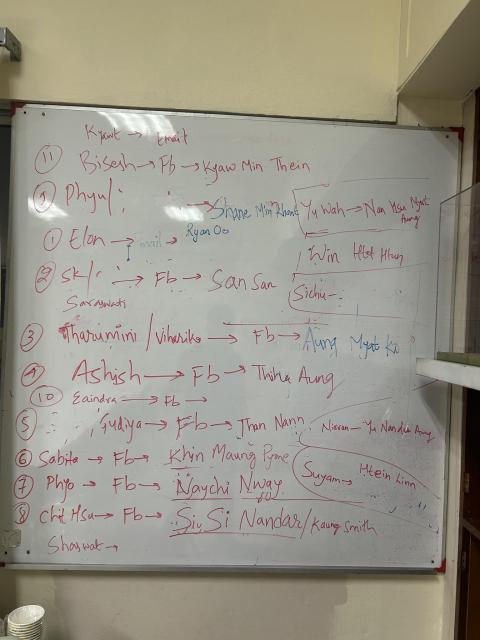 Kyawt → Email
11 Bisesh → Fb → Kyaw Min Thein
9 Phyu/ → Shane Min Khant
Yu Wah → Nan Hsu Myat Aung
1 Elon → Email → Ryan Oo
Win Htet Htun
2 SK/ → Fb → San San
Saraswati
Sichu -
3 Tharumini / Viharika → Fb → Aung Myat Ko
4 Ashish → Fb → Thiha Aung
10 Eaindra → Fb →
5 Gudiya → Fb → Than Nann
Nisran - Yu Nandar Aung
6 Sabita → Fb → Khin Maung Pyme
Suyam → Htein Linn
7 Phyo → Fb → Naychi Nway
8 Chit Hsu → Fb → Siu Si Nandar / Kaung Smith
Shaswat →